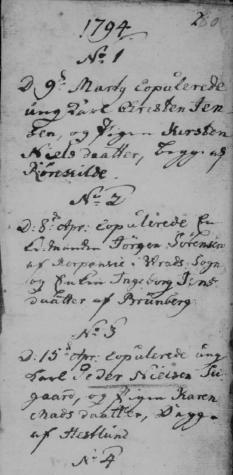 1794.
No. 1
D. 9de Martj Copulerede
ung Karl Christen Jen
sen, og Pigen Kirsten
Niels daatter, begge af
No. 2
D: 8de Apr: Copulerede En
kemanden Jörgen Sörensen
af i Wrads Sogn
og Enken Ingeborg Jens
daatter af Brünberg
No. 3
D: 15de Apr: Copulerede ung
Karl Peder Nielsen
gaard, og Pigen Karen
Mads daatter, begge
af Hestlund
No. 4